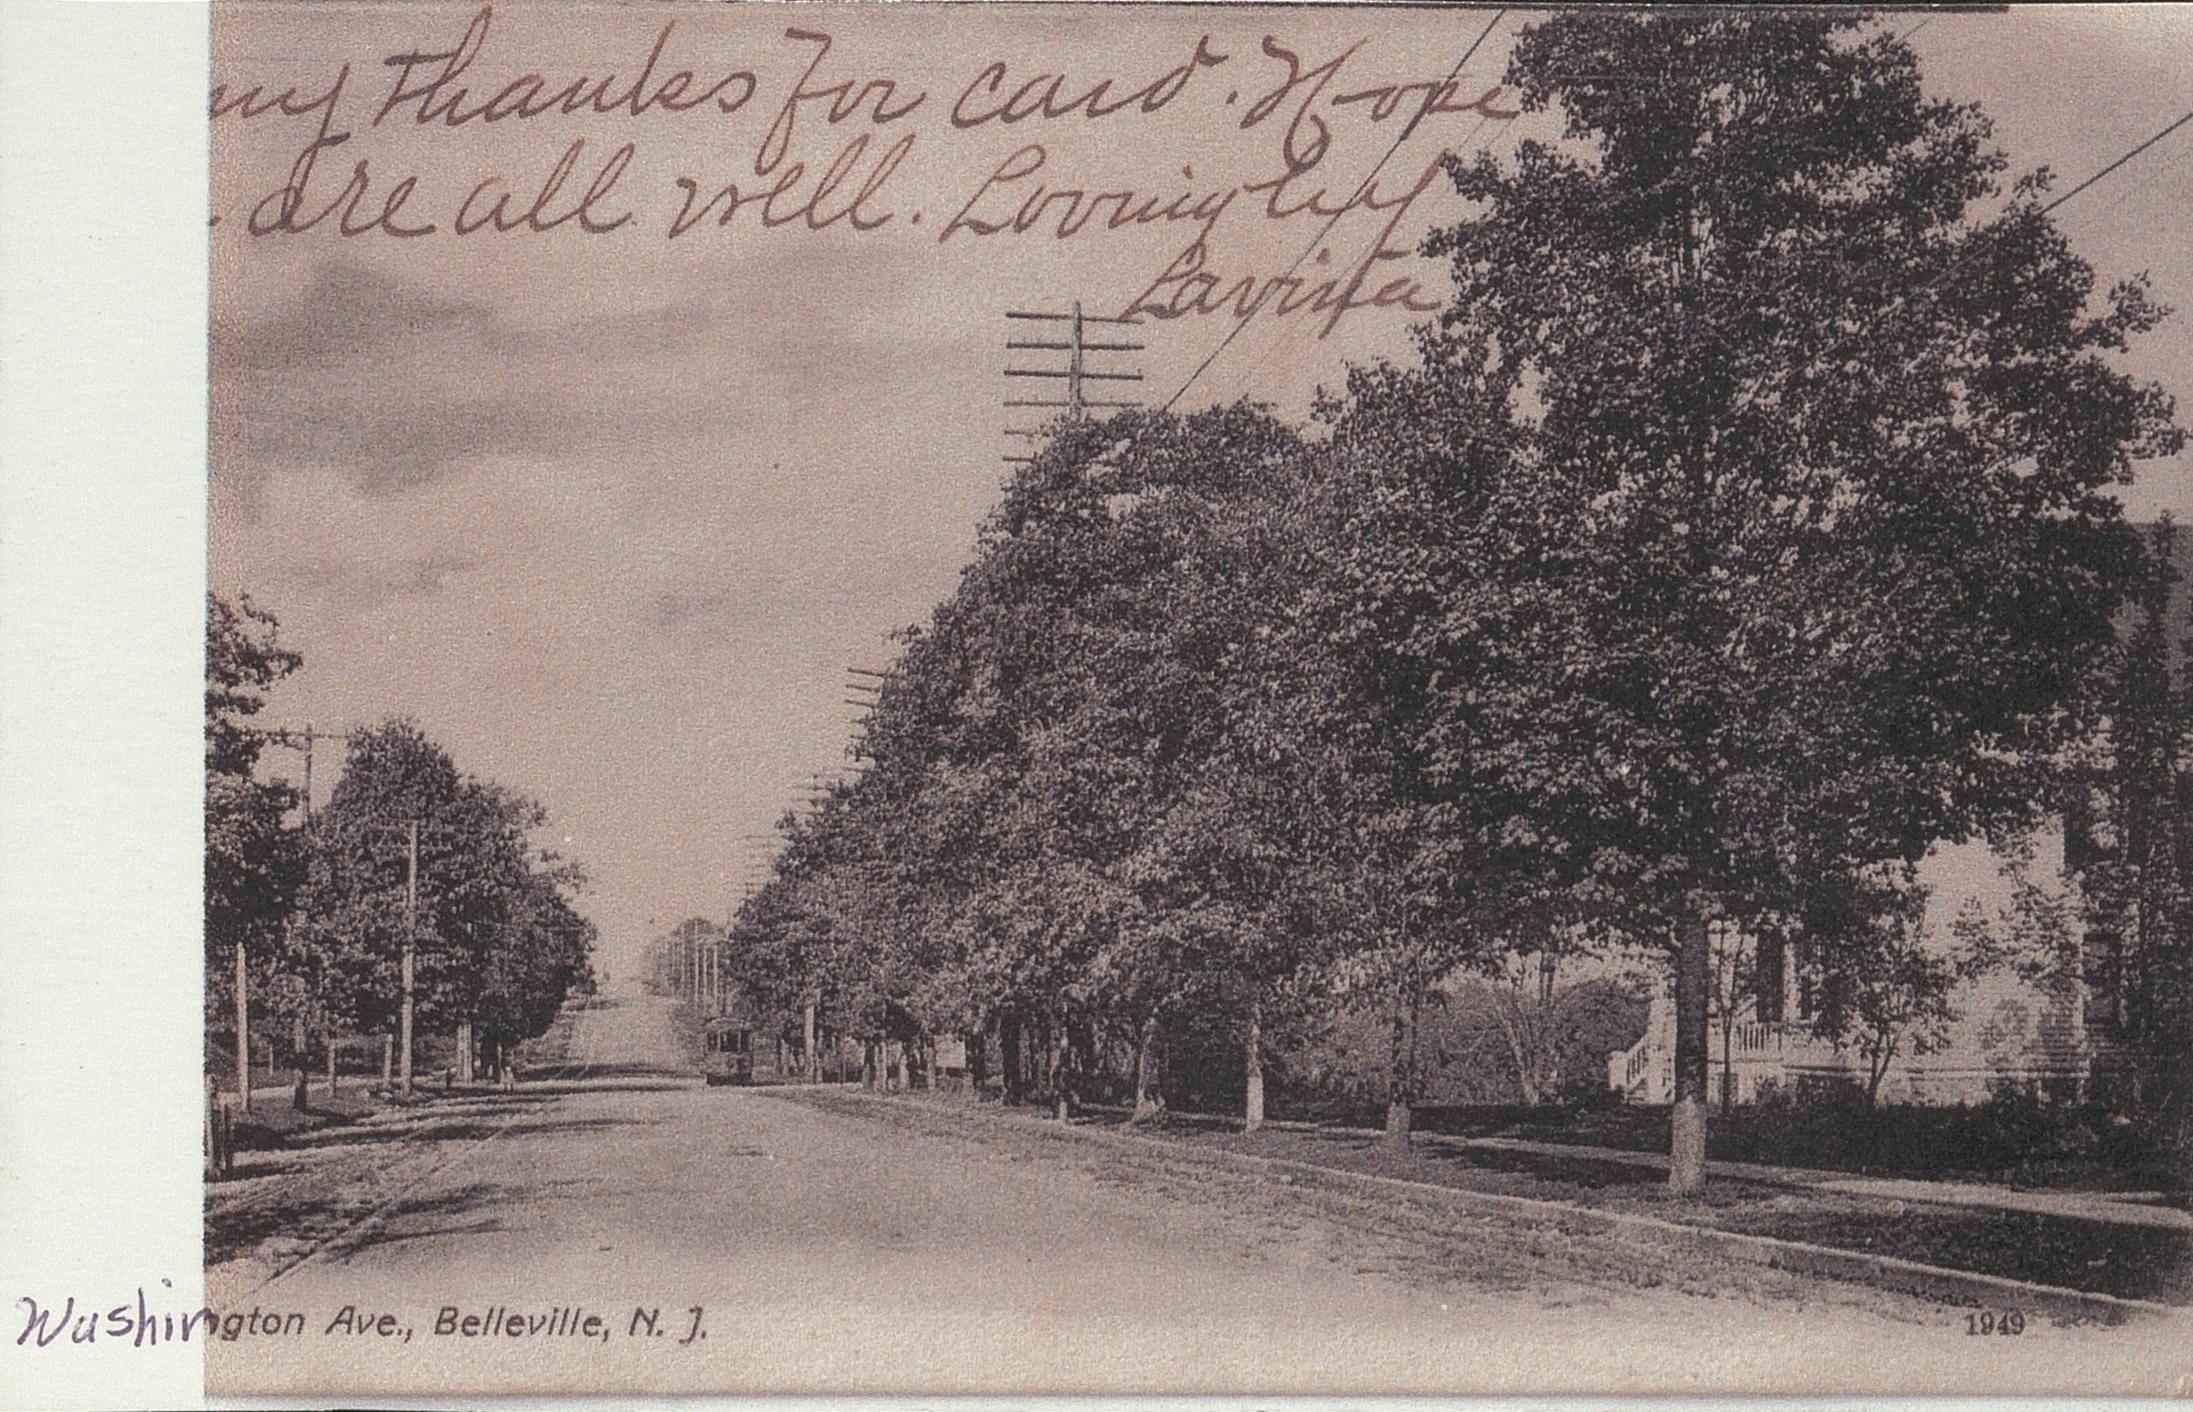 ny thanks for card. Hope
are all well. Lovingly
Lavinia
Washington Ave., Belleville, N. J.
1949